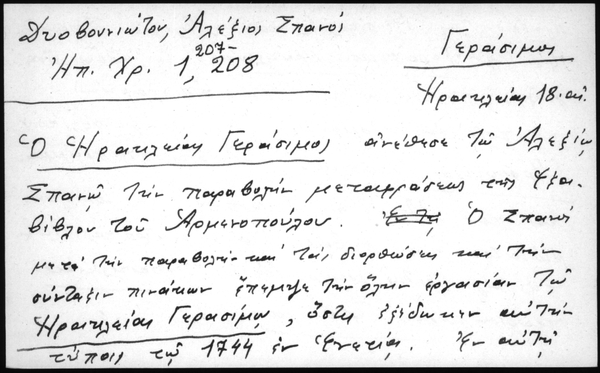 Δυοβουνιώτου, Ἀλέξιος Σπανός
Ἠπ. Χρ. 1, 207-208
Γεράσιμος
Ἡρακλείας 18. αἰ.
Ὁ Ἡρακλείας Γεράσιμος ἀνέθεσε τῷ Ἀλεξίῳ
Σπανῷ τὴν παραβολὴν μεταφράσεως τῆς Ἑξα-
βίβλου τοῦ Ἀρμενοπούλου. Ὁ Σπανός
μετὰ τὴν παραβολὴν καὶ τὰς διορθώσεις καὶ τὴν
σύνταξιν πινάκων ἔπεμψε τὴν ὅλην ἐργασίαν τῷ
Ἡρακλείας Γερασίμῳ, ὅστις ἐξέδωκεν αὐτὴν
τύποις τῷ 1744 ἐν Ἑνετίᾳ. Ἐν αὐτῇ